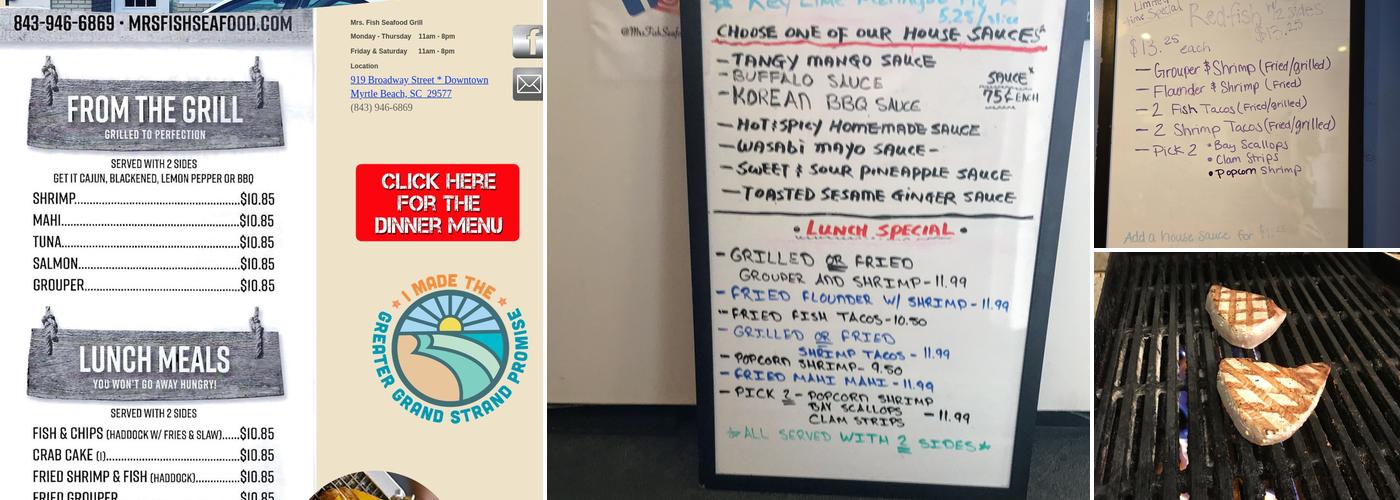 843-946-6869 • MRSFISHSEAFOOD.COM
FROM THE GRILL
GRILLED TO PERFECTION
SERVED WITH 2 SIDES
GET IT CAJUN, BLACKENED, LEMON PEPPER OR BBQ
SHRIMP....................................$10.85
MAHI........................................$10.85
TUNA........................................$10.85
SALMON...................................$10.85
GROUPER..................................$10.85
LUNCH MEALS
YOU WON'T GO AWAY HUNGRY!
SERVED WITH 2 SIDES
FISH & CHIPS (HADDOCK W/ FRIES & SLAW).....$10.85
CRAB CAKE (1)..............................$10.85
FRIED SHRIMP & FISH (HADDOCK)..........$10.85
FRIED GROUPER..........................$10.85
Mrs. Fish Seafood Grill
Monday - Thursday 11am - 8pm
Friday & Saturday 11am - 8pm
Location
919 Broadway Street * Downtown
Myrtle Beach, SC 29577
(843) 946-6869
f
CLICK HERE
FOR THE
DINNER MENU
I MADE THE
GREATER GRAND STRAND PROMISE
Key Lime Meringue Pie
5.25/slice
CHOOSE ONE OF OUR HOUSE SAUCES*
- TANGY MANGO SAUCE
- BUFFALO SAUCE
- KOREAN BBQ SAUCE
SAUCE*
75¢ EACH
- HOT & SPICY HOMEMADE SAUCE
- WASABI MAYO SAUCE -
- SWEET & SOUR PINEAPPLE SAUCE
- TOASTED SESAME GINGER SAUCE
• LUNCH SPECIAL •
- GRILLED OR FRIED
GROUPER AND SHRIMP - 11.99
- FRIED FLOUNDER W/ SHRIMP - 11.99
- FRIED FISH TACOS - 10.50
- GRILLED OR FRIED
SHRIMP TACOS - 11.99
- POPCORN SHRIMP - 9.50
- FRIED MAHI MAHI - 11.99
- PICK 2 - POPCORN SHRIMP
BAY SCALLOPS - 11.99
CLAM STRIPS
*ALL SERVED WITH 2 SIDES*
Limited
time Special
Redfish w/ 2 sides
$13.25
$13.25 each
- Grouper & Shrimp (Fried/grilled)
- Flounder & Shrimp (Fried)
- 2 Fish Tacos (Fried/grilled)
- 2 Shrimp Tacos (Fried/grilled)
- Pick 2 • Bay Scallops
• Clam Strips
• Popcorn Shrimp
Add a house sauce for